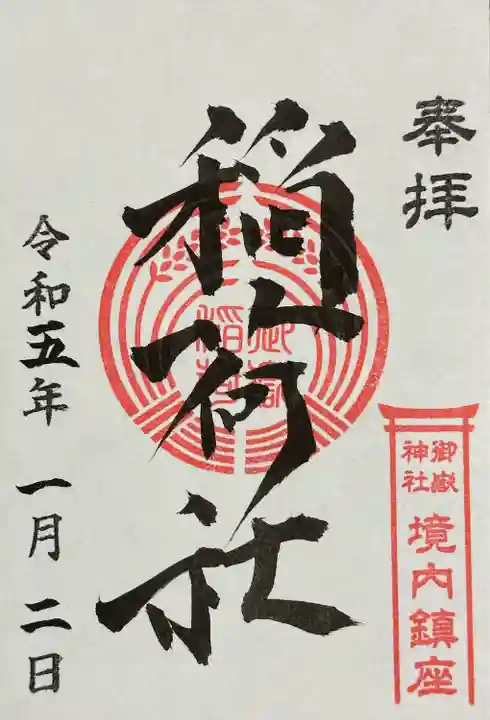 奉拝
稲荷社
御嶽
稲荷
御嶽
神社
境内鎮座
令和五年 一月 二日